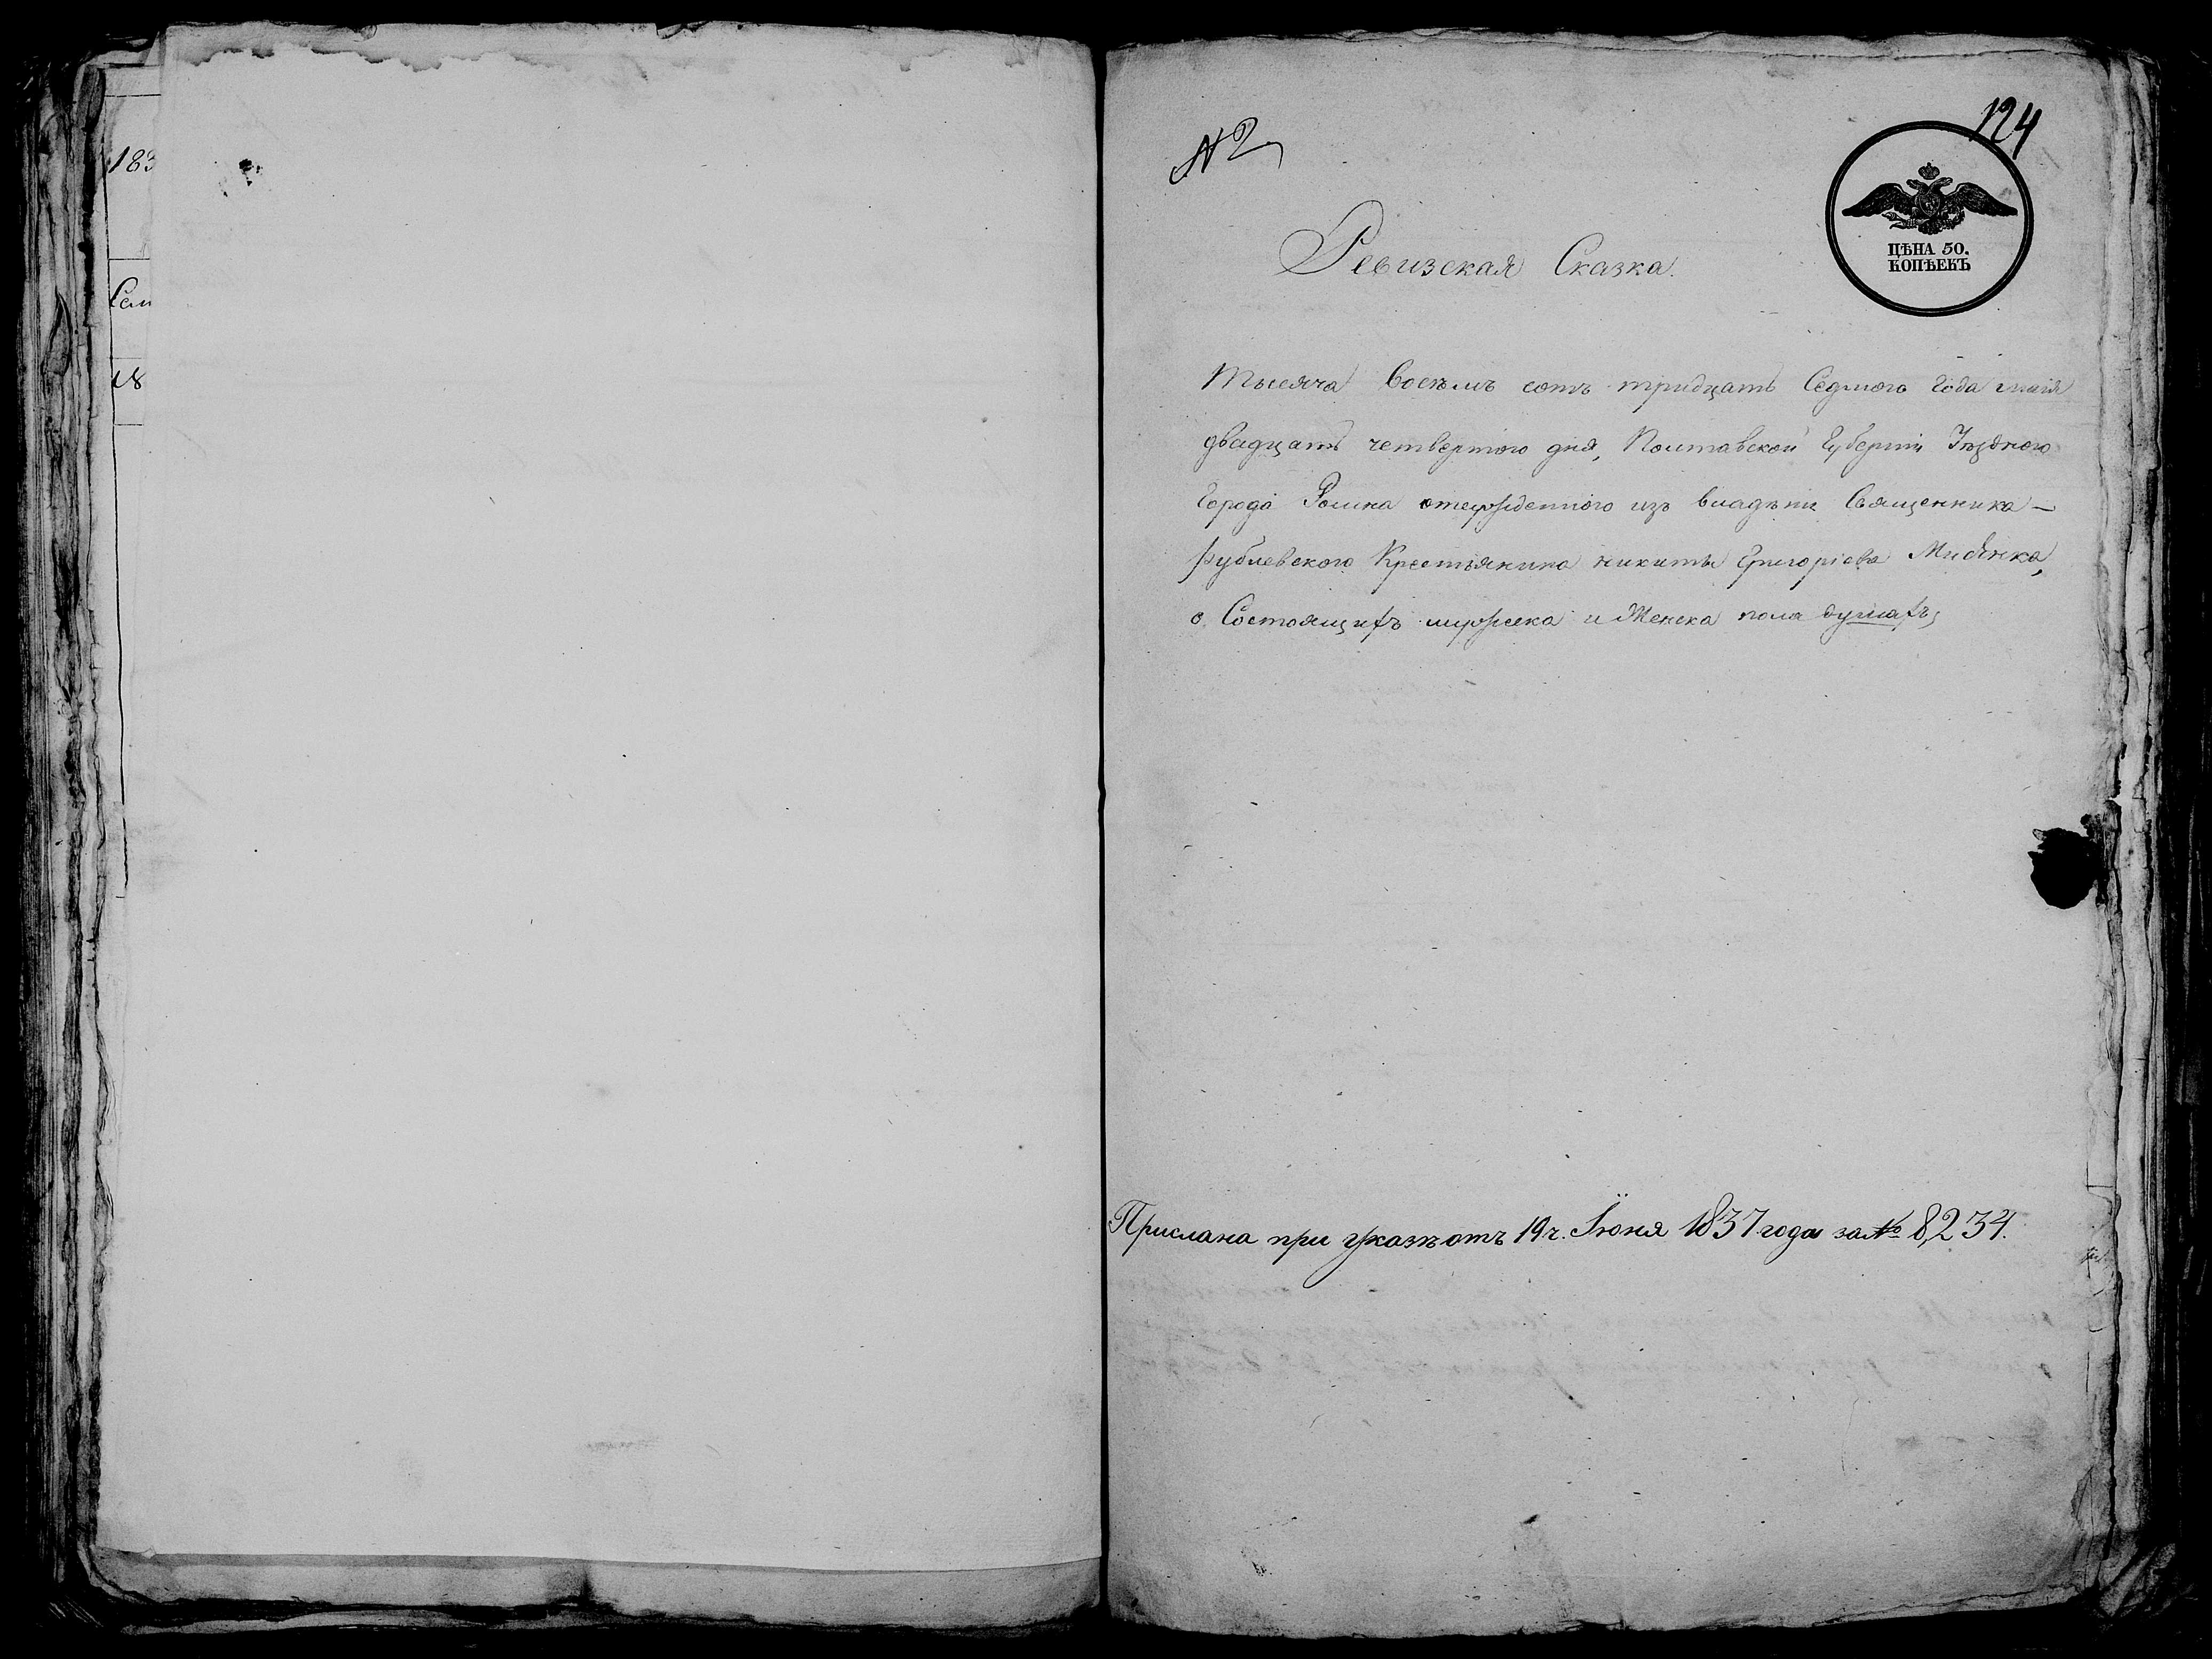 183
Сем
18
№ 2
124
ЦѢНА 50.
КОПѢЕКЪ
Ревизская Сказка.
Тысяча восемъ сотъ тридцать Седмого года маія
двадцать четвертого дня, Полтавской Губерніи Уѣздного
Города Ромна отсужденного изъ владѣнія Священника —
Рублевского Крестьянина никиты Григоріева
о Состоящихъ мужеска и Женска пола душахъ,
Прислана при указѣ отъ 19 ч. Іюня 1837 года за № 8,234.